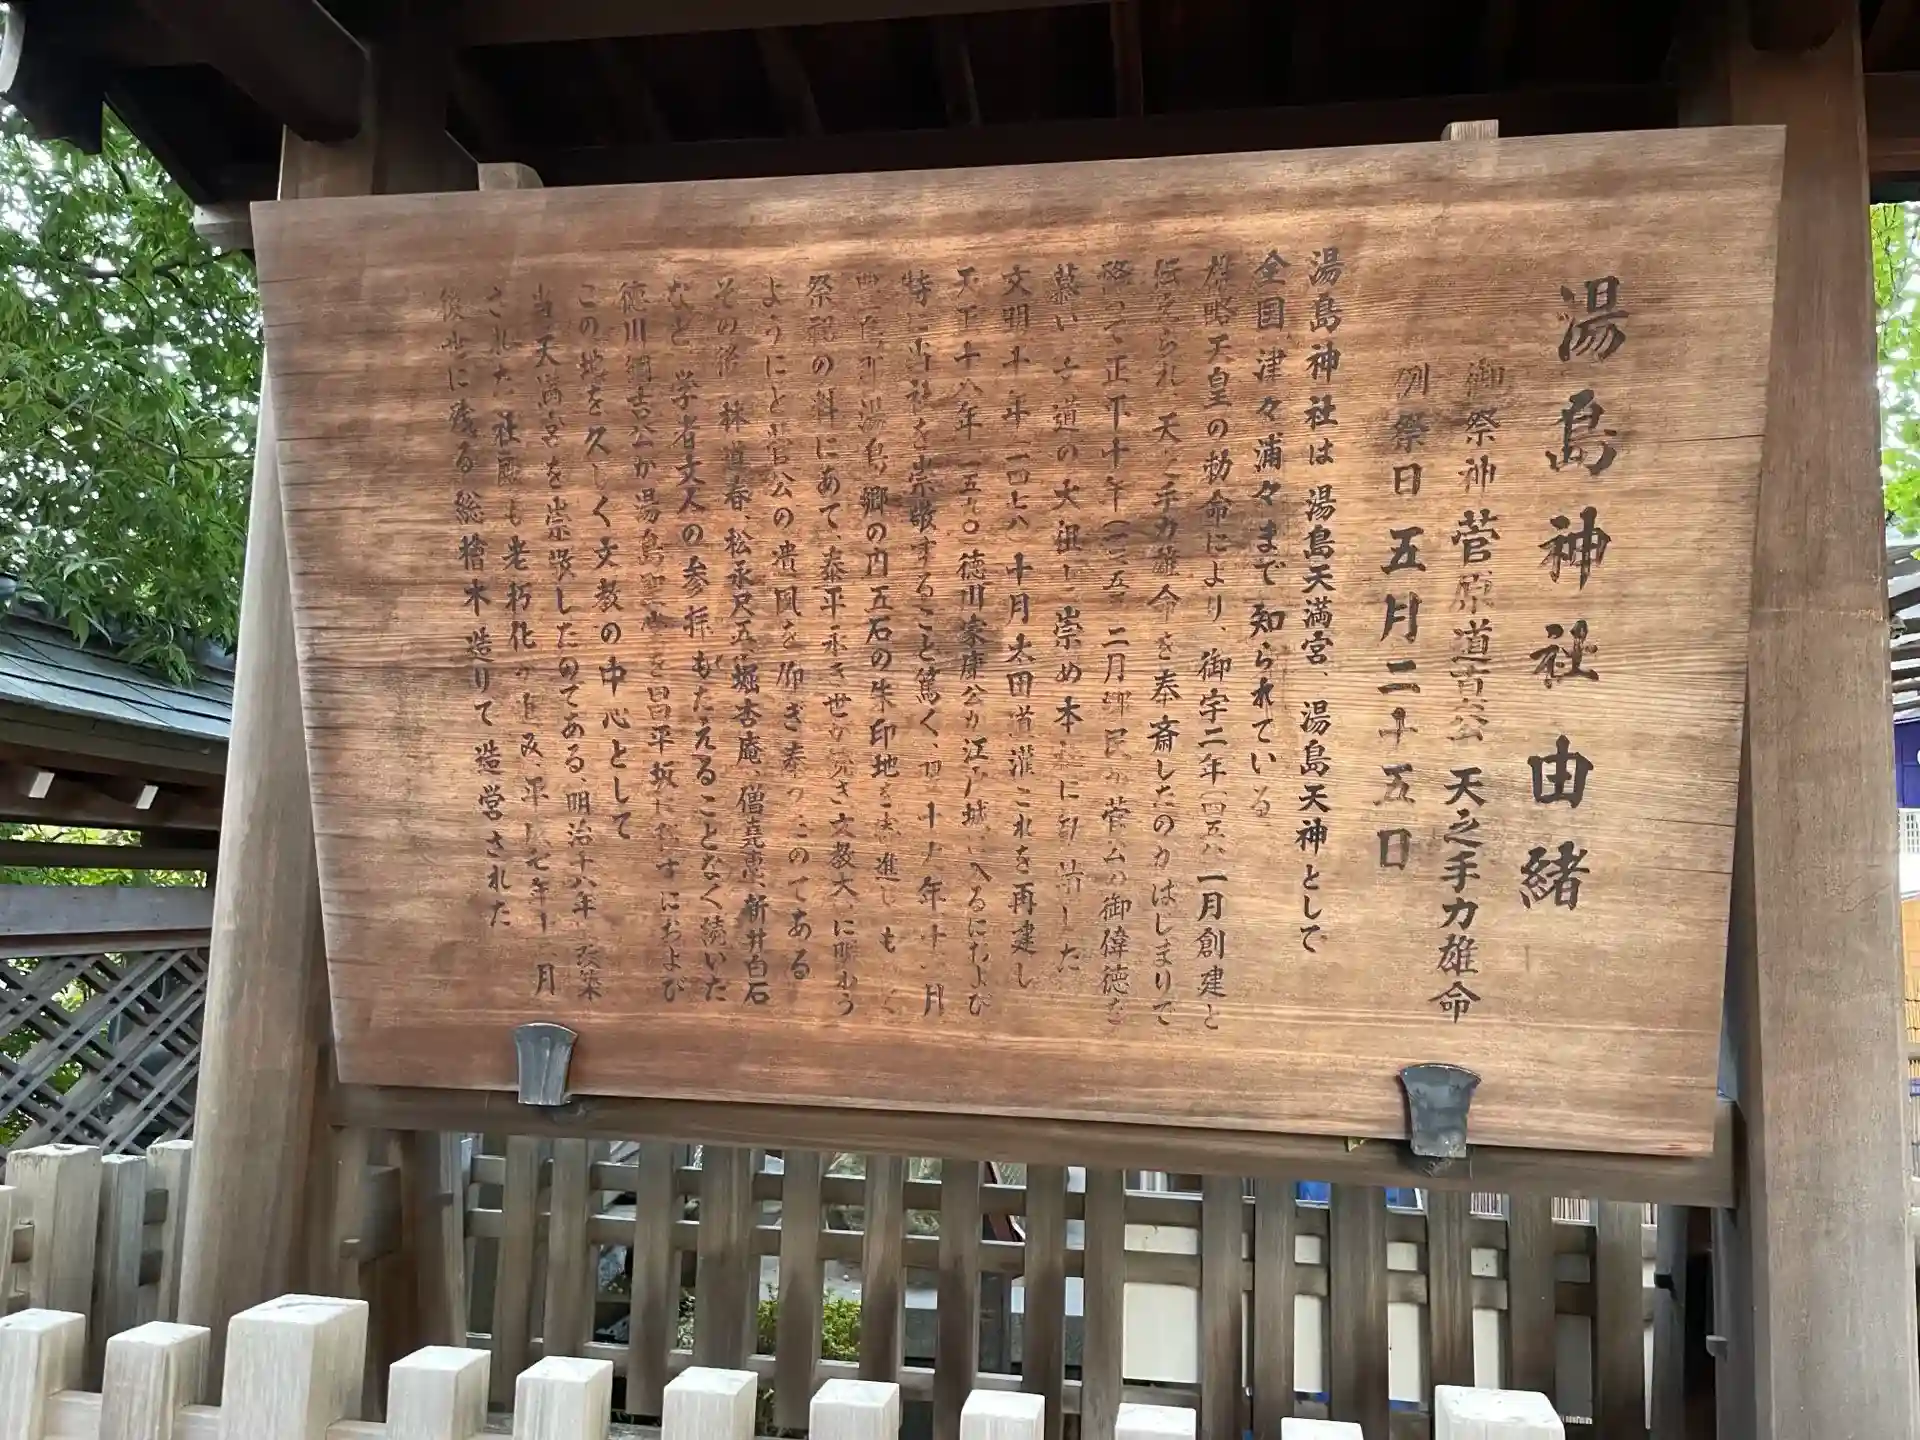 湯島神社由緒
御祭神 菅原道真公 天之手力雄命
例祭日 五月二十五日
湯島神社は 湯島天満宮、湯島天神として
全国、津々浦々まで知られている
雄略天皇の勅命により、御宇二年 四五八 一月創建と
伝えられ 天之手力雄命を奉斎したのがはじまりで
降って 正平十年(一三五五 二月郷民が菅公の御偉徳を
慕い 文道の大祖と崇め本社に勧請した
文明十年 一四七八 十月太田道灌これを再建し
天正十八年 一五九〇 徳川家康公が江戸城に入るにおよび
特に当社を崇敬すること篤く、翌十九年十一月
豊島郡湯島郷の内五石の朱印地を寄進し もって
祭祀の料にあて、泰平永き世が続き文教大いに賑わう
ようにと菅公の遺風を仰ぎ奉ったのである
その後 林道春、松永尺五、堀杏庵、僧堯恵、新井白石
など 学者文人の参拝もたえることなく続いた
徳川綱吉公が湯島聖堂を昌平坂に移すにおよび
この地を久しく文教の中心として
当天満宮を崇敬したのである、明治十八年に改築
された社殿も老朽化が進み、平成七年十二月
後世に残る総檜木造りで造営された